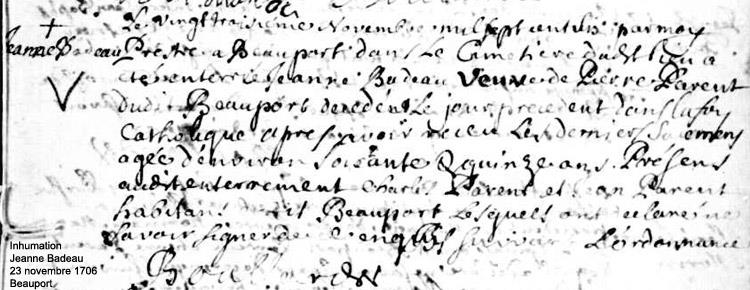 Le vingt troisieme Novembre mil sept cent six par moy
Jeanne Badeau
Prestre a Beauport dans Le Cimetiere dudit lieu a
ete enterrée Jeanne Badeau Veuve de Pierre Parent
dudit Beauport decedée Le jour precedent dans la foy
Catholique apres avoir receu Les derniers Sacremens
agée d'environ Soixante & quinze ans. Présens
audit enterrement Charles Parent et Jean Parent
habitans dudit Beauport Lesquels ont declaré ne
savoir signer de ce enquis suivant L'ordonnance
Inhumation
Jeanne Badeau
23 novembre 1706
Beauport.